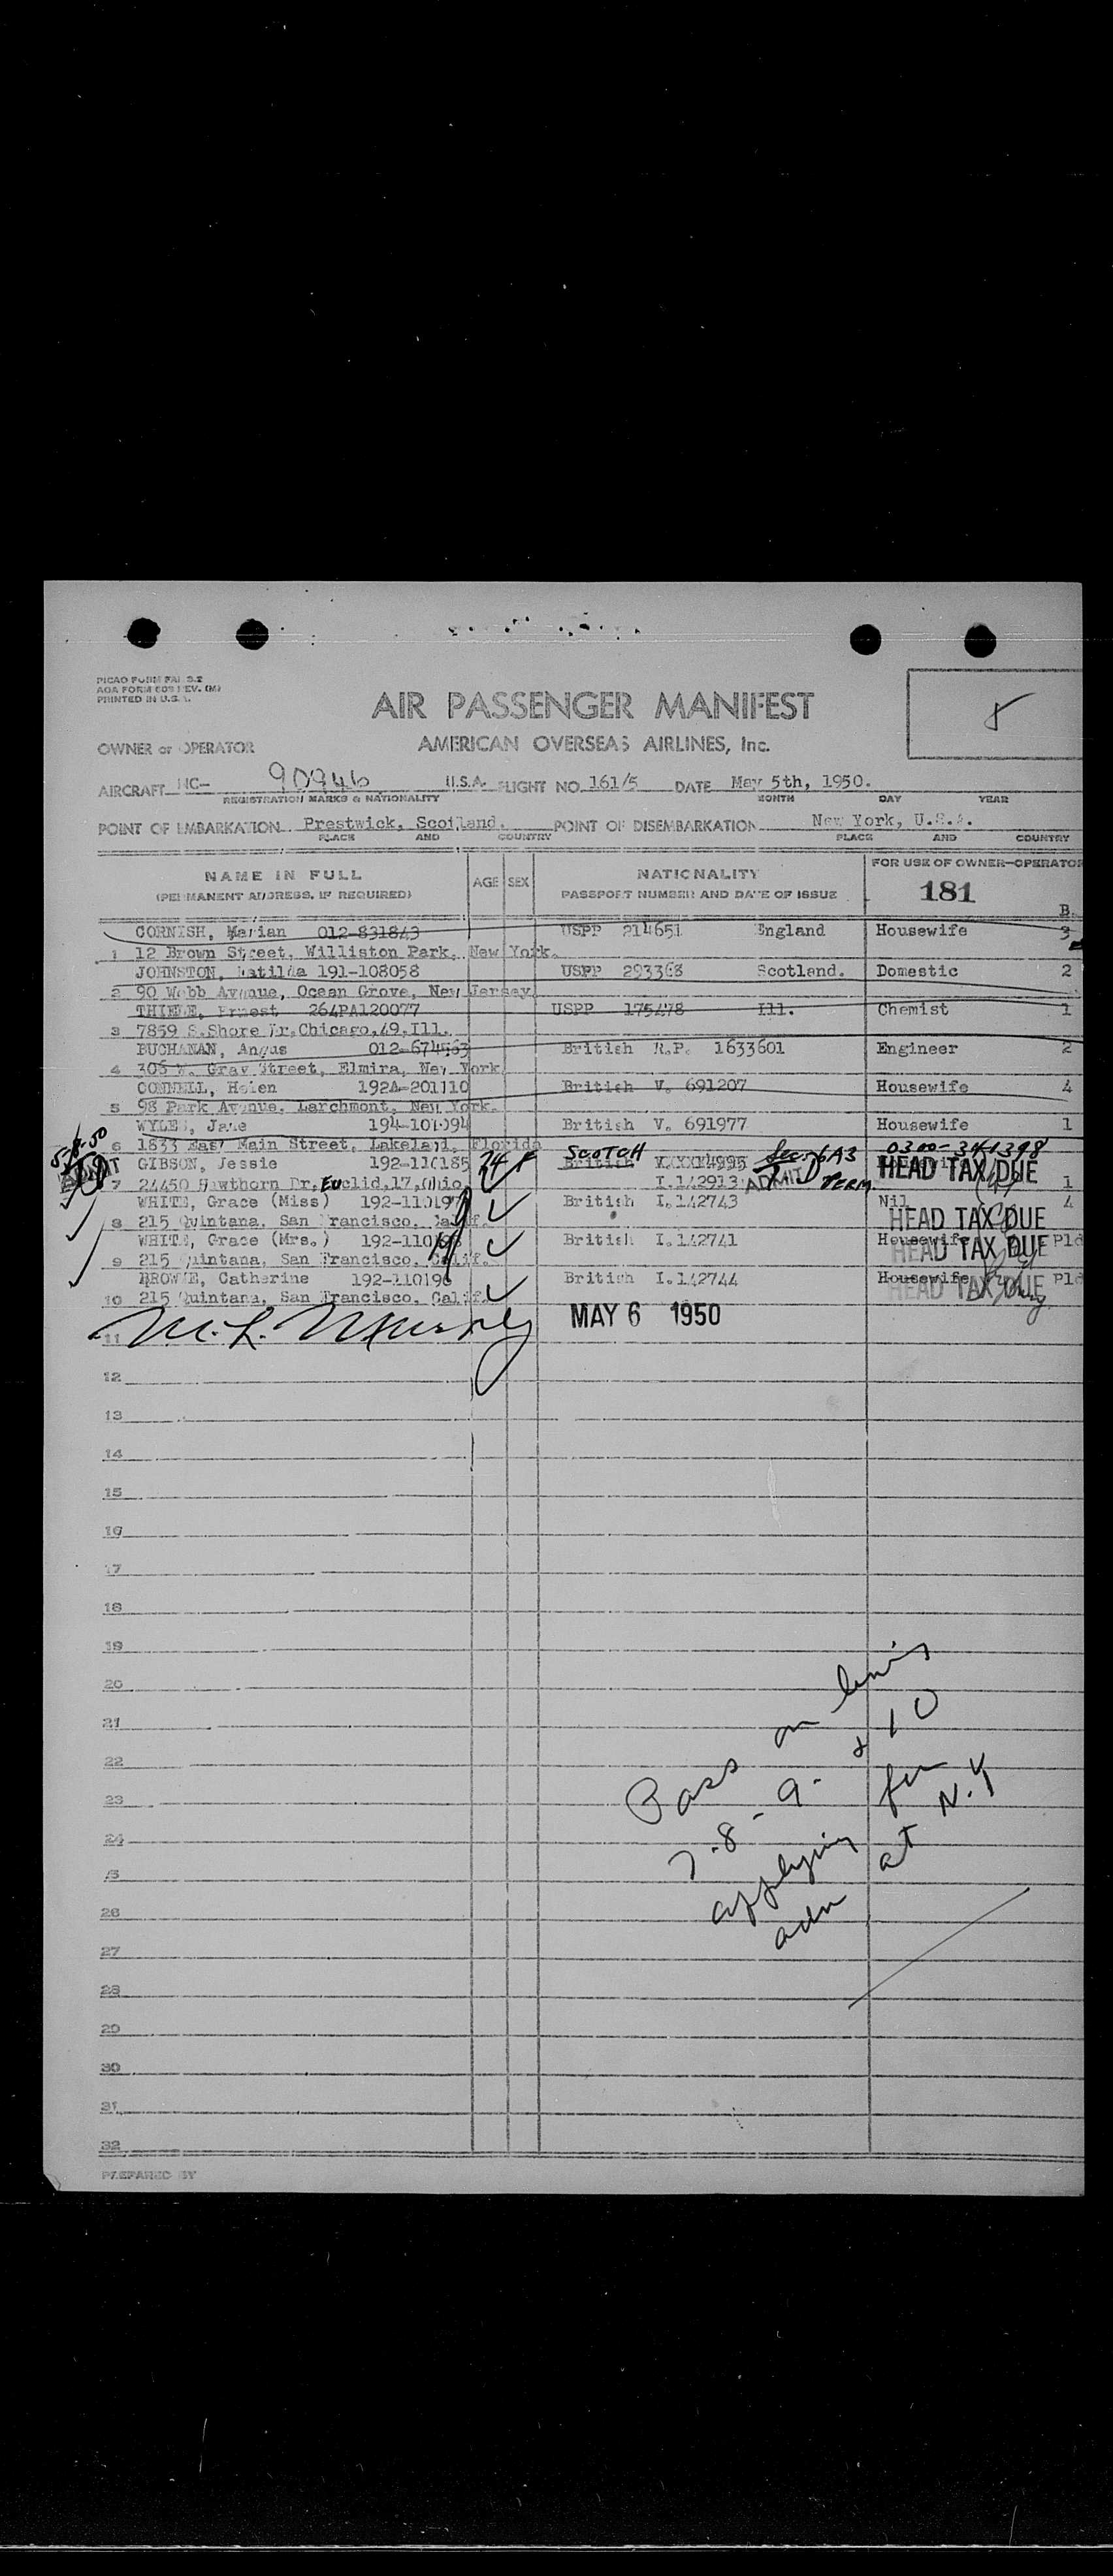 PICAO FORM FAI 9.2
AOA FORM 609 REV. (M)
PRINTED IN U.S.A.
AIR PASSENGER MANIFEST
8
OWNER or OPERATOR AMERICAN OVERSEAS AIRLINES, Inc.
AIRCRAFT NC- 90946 U.S.A. FLIGHT NO. 161/5 DATE May 5th, 1950.
REGISTRATION MARKS & NATIONALITY MONTH DAY YEAR
POINT OF EMBARKATION Prestwick, Scotland. POINT OF DISEMBARKATION New York, U.S.A.
PLACE AND COUNTRY PLACE AND COUNTRY
NAME IN FULL AGE SEX NATIONALITY FOR USE OF OWNER-OPERATOR
(PERMANENT ADDRESS, IF REQUIRED) PASSPORT NUMBER AND DATE OF ISSUE 181
B.
CORNISH, Marian 012-831843 USPP 214651 England Housewife 3
1 12 Brown Street, Williston Park, New York.
JOHNSTON, Matilda 191-108058 USPP 293368 Scotland. Domestic 2
2 90 Webb Avenue, Ocean Grove, New Jersey
Ernest 264PA120077 USPP 175478 Ill. Chemist 1
3 7859 S.Shore Dr.Chicago,49,Ill.
BUCHANAN, Angus 012-674563 British R.P. 1633601 Engineer 2
4 306 W. Gray Street, Elmira, New York.
CONNELL, Helen 192A-201110 British V. 691207 Housewife 4
5 98 Park Avenue, Larchmont, New York.
WYLES, Jane 194-101094 British V. 691977 Housewife 1
6 1833 East Main Street, Lakeland, Florida
SCOTCH Sec. 6A3 0300-341398
GIBSON, Jessie 192-110185 24 F British HEAD TAX DUE
7 24450 Hawthorn Dr, Euclid,17,Ohio I.142913 ADMIT PERM. 1
WHITE, Grace (Miss) British I.142743 Nil 4
8 215 Quintana, San Francisco, Calif. HEAD TAX DUE
WHITE, Grace (Mrs.) British I.142741 Housewife Pld
9 215 Quintana, San Francisco, Calif. HEAD TAX DUE
BROWNE, Catherine 192-110196 British I.142744 Housewife Pld
10 215 Quintana, San Francisco, Calif. HEAD TAX DUE
11 MAY 6 1950
12
13
14
15
16
17
18
19
20
21
22
23
24
25
26
27
28
29
30
31
32
Pass on lines
7-8-9- & 10
applying for
adm at N.Y
PREPARED BY